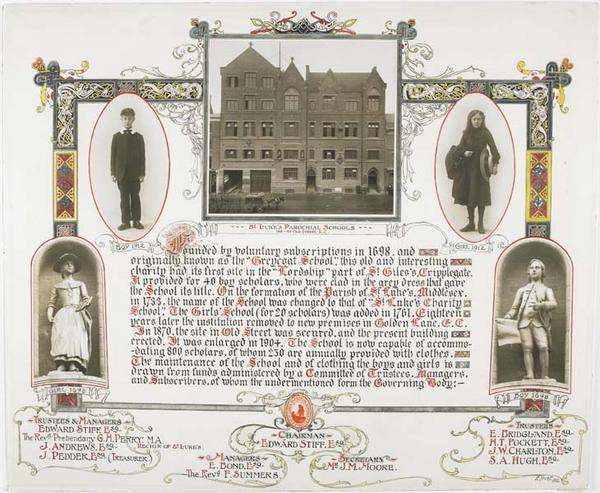 St. LUKE'S PAROCHIAL SCHOOLS
OLD STREET E.C.
BOY 1912
GIRL 1912
Founded by voluntary subscriptions in 1698, and
originally known as the "Greycoat School," this old and interesting
charity had its first site in the "Lordship" part of St Giles's, Cripplegate.
It provided for 40 boy scholars, who were clad in the grey dress that gave
the School its title. On the formation of the Parish of St Luke's, Middlesex,
in 1733, the name of the School was changed to that of "St Luke's Charity
School." The Girls' School (for 20 scholars) was added in 1761. Eighteen
years later the institution removed to new premises in Golden Lane, E.C.
In 1870, the site in Old Street was secured, and the present building
erected. It was enlarged in 1904. The School is now capable of accommo-
-dating 800 scholars, of whom 250 are annually provided with clothes.
The maintenance of the School and of clothing the boys and girls is
drawn from funds administered by a Committee of Trustees, Managers,
and Subscribers, of whom the undermentioned form the Governing Body:—
GIRL 1698
BOY 1698
TRUSTEES & MANAGERS
EDWARD STIFF, Esq.
The Revd Prebendary G.H. PERRY, M.A.
RECTOR OF St LUKE'S.
J. ANDREWS, Esq.
J. PEDDER, Esq. (TREASURER.)
CHAIRMAN
EDWARD STIFF, Esq.
MANAGERS
E. BOND, Esq.
The Revd F. SUMMERS.
SECRETARY
Mr J.M. MOORE.
TRUSTEES
E. BRIDGLAND, Esq.
H.T. POCKETT, Esq.
J.W. CHARLTON, Esq.
S.A. HUGH, Esq.